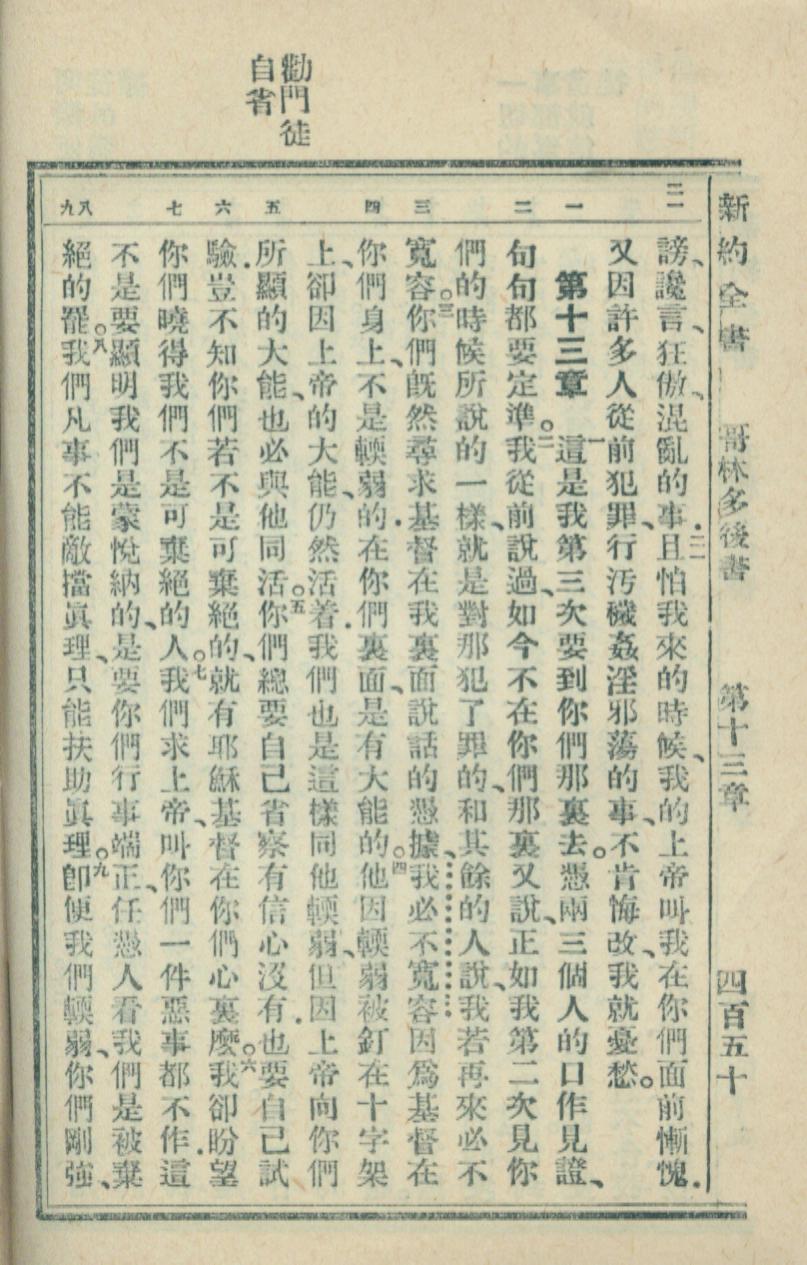 勸門徒
自省
新約全書 哥林多後書 第十三章 四百五十
二一
謗、讒言、狂傲、混亂的事．二一且怕我來的時候、我的上帝叫我在你們面前慚愧．
又因許多人從前犯罪、行汚穢姦淫邪蕩的事、不肯悔改、我就憂愁。
一
第十三章 一這是我第三次要到你們那裏去。憑兩三個人的口作見證、
二
句句都要定準。二我從前說過、如今不在你們那裏又說、正如我第二次見你
們的時候所說的一樣、就是對那犯了罪的、和其餘的人說、我若再來必不
三
寬容。三你們旣然尋求基督在我裏面說話的憑據、我必不寬容．因爲基督在
四
你們身上、不是輭弱的．在你們裏面、是有大能的。四他因輭弱、被釘在十字架
上、卻因上帝的大能、仍然活着．我們也是這樣同他輭弱、但因上帝向你們
五
所顯的大能、也必與他同活。五你們總要自己省察有信心沒有．也要自己試
六
驗．豈不知你們若不是可棄絕的、就有耶穌基督在你們心裏麼。六我卻盼望
七
你們曉得我們不是可棄絕的人。七我們求上帝、叫你們一件惡事都不作．這
不是要顯明我們是蒙悅納的、是要你們行事端正、任憑人看我們是被棄
八九
絕的罷。八我們凡事不能敵擋眞理、只能扶助眞理。九卽使我們輭弱、你們剛強、